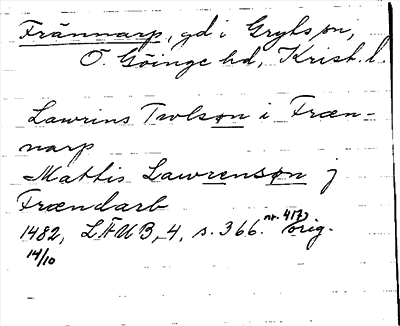 Frännarp, gd i Gryts sn,
Ö. Göinge hd, Krist. l.
Lawrins Twlson i Fræn-
narp
Mattis Lawrenson j
Frændarb
1482, LÅUB, 4, s. 366. nr. 417, orig.
14/10